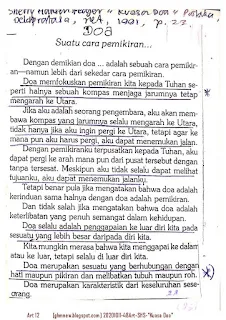 DOA
Suatu cara pemikiran...
Dengan demikian doa ... adalah sebuah cara pemikir-
an—namun lebih dari sekedar cara pemikiran.
Doa memfokuskan pemikiran kita kepada Tuhan se-
perti halnya sebuah kompas menjaga jarumnya tetap
mengarah ke Utara.
Jika aku adalah seorang pengembara, aku akan mem-
bawa kompas yang jarumnya selalu mengarah ke Utara,
tidak hanya jika aku ingin pergi ke Utara, tetapi agar ke
mana pun aku harus pergi, aku dapat menemukan jalan.
Dengan pemikiranku terpusatkan kepada Tuhan, aku
dapat pergi ke arah mana pun dari pusat tersebut dengan
tanpa tersesat. Meskipun aku tidak selalu dapat melihat
tujuanku, aku dapat menemukan jalanku.
Tetapi benar pula jika mengatakan bahwa doa adalah
kerinduan sama halnya dengan doa adalah pemikiran.
Dan tidak salah jika mengatakan bahwa doa adalah
keterlibatan yang penuh semangat dalam kehidupan.
Doa selalu adalah penggapaian ke luar diri kita pada
sesuatu yang lebih besar daripada diri kita.
Kita mungkin merasa bahwa kita menggapai ke dalam
atau ke luar, tetapi selalu di luar diri kita.
Doa merupakan sesuatu yang berhubungan dengan
hati maupun pikiran dan melibatkan tubuh maupun roh.
Doa merupakan karakteristik dari keseluruhan sese-
orang.
Art 12 (ghmnew.blogspot.com) 20201101-484H-SHS-"Kuasa Doa"